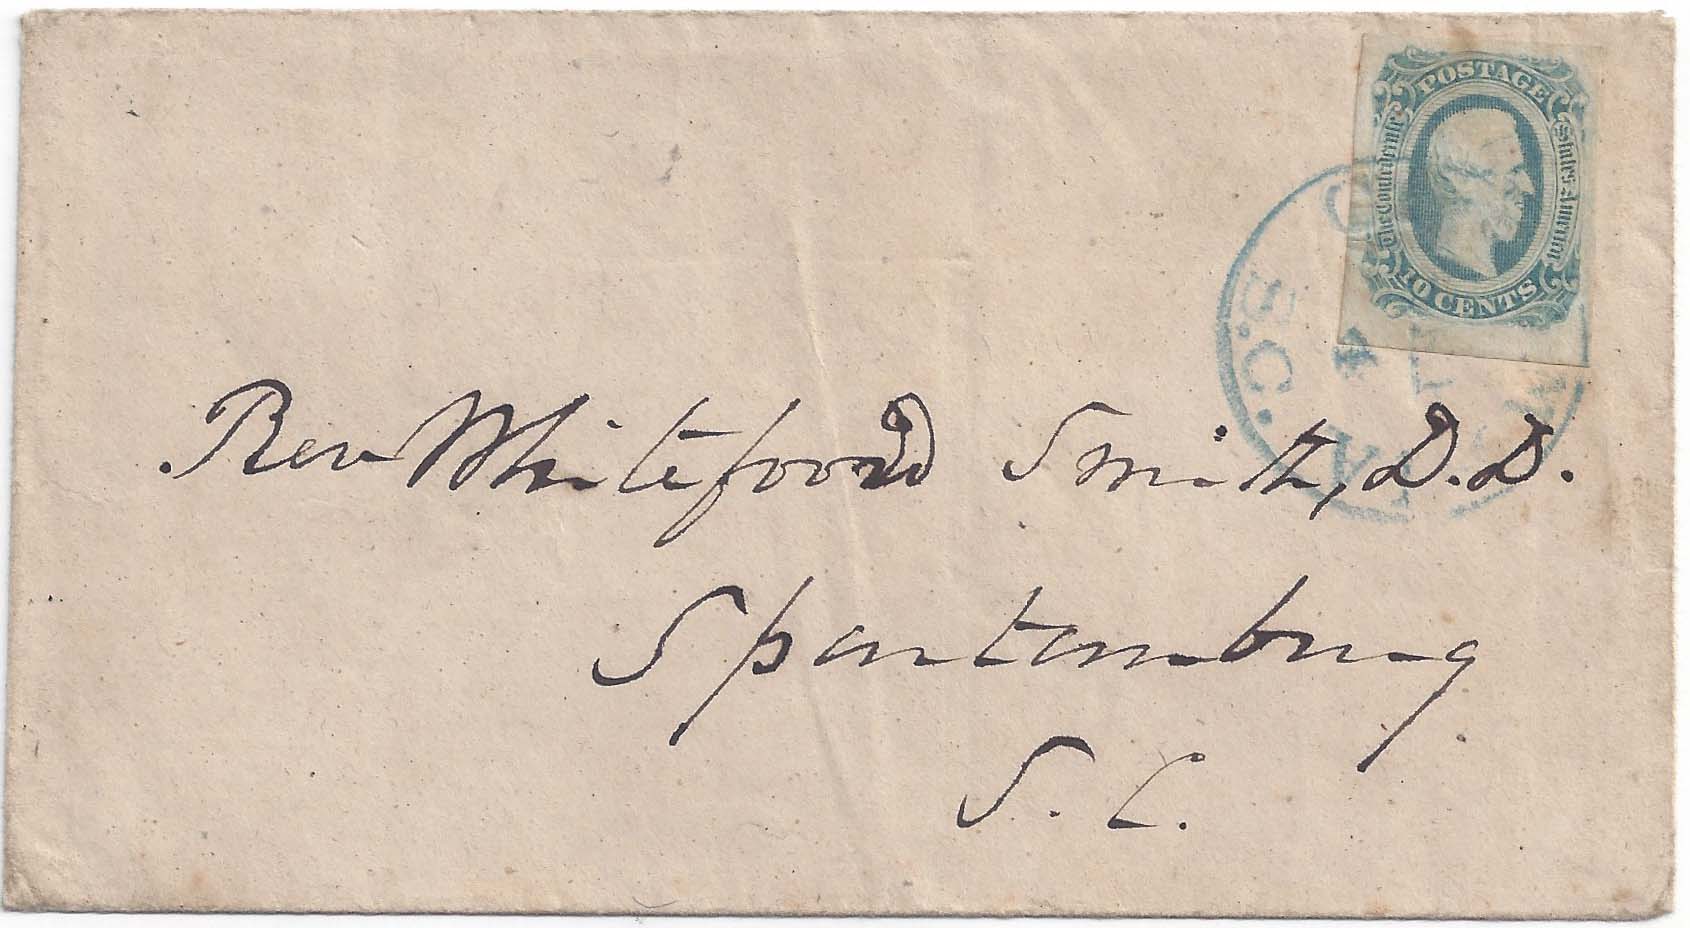 POSTAGE
The Confederate States America
10 CENTS
S.C.
4
Rev Whitefoord Smith, D.D.
Spartanburg
S. C.